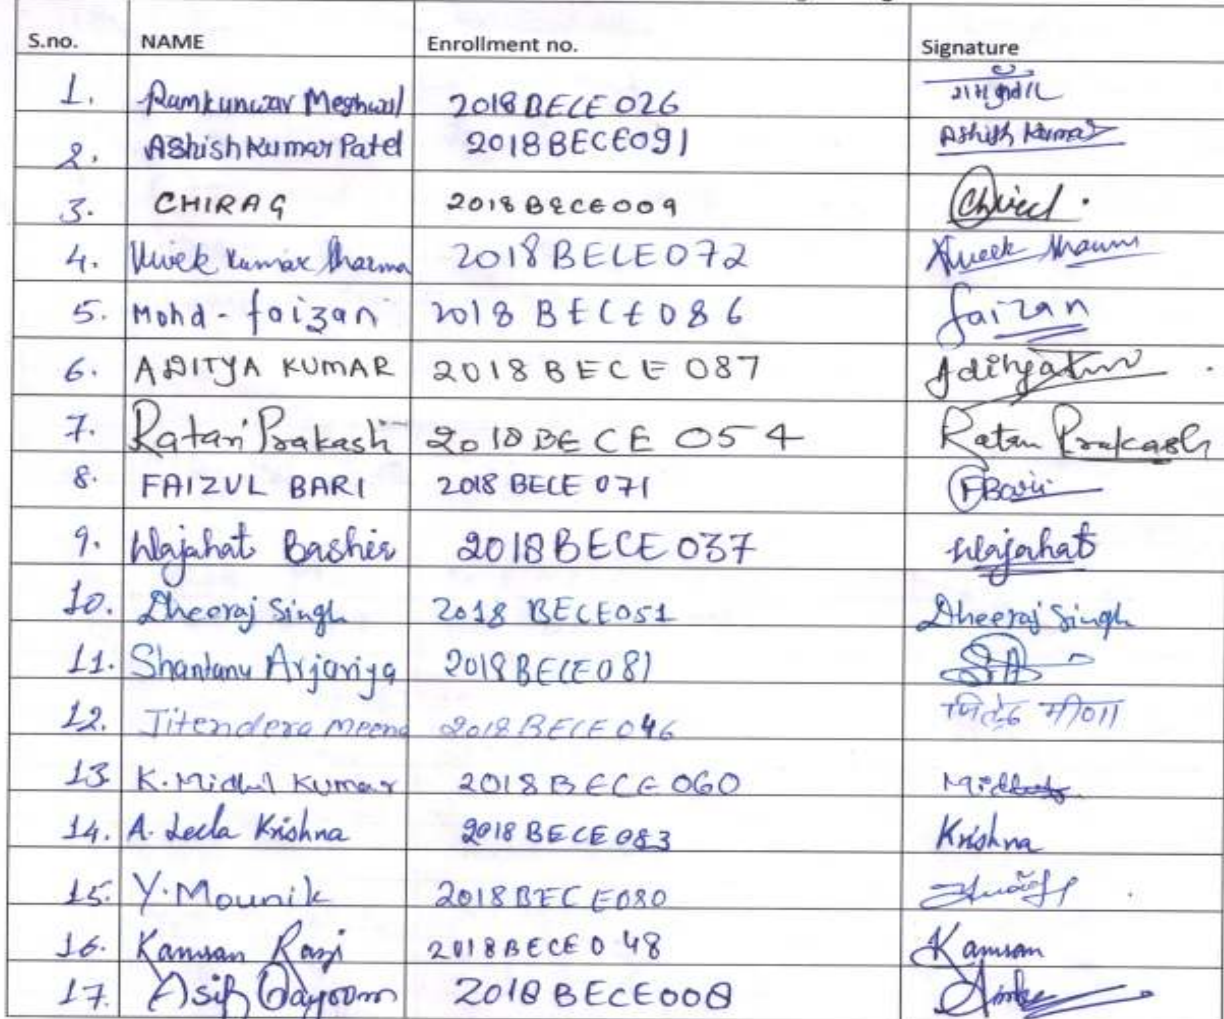 S.no. NAME Enrollment no. Signature
1. Ramkunwar Meghwal 2018BECE026
2. Ashish Kumar Patel 2018BECE091 Ashish Kumar
3. CHIRAG 2018BECE009
4. Vivek Kumar Sharma 2018BECE072 Vivek Sharma
5. Mohd-faizan 2018BECE086 faizan
6. ADITYA KUMAR 2018BECE087
7. Ratan Prakash 2018BECE054 Ratan Prakash
8. FAIZUL BARI 2018BECE071 FBari
9. Wajahat Bashir 2018BECE037 Wajahat
10. Dheeraj Singh 2018BECE051 Dheeraj Singh
11. Shantanu Arjariya 2018BECE081 SA
12. Jitendera meena 2018BECE046 मीणा
13. K. Midhul Kumar 2018BECE060
14. A. Leela Krishna 2018BECE083 Krishna
15. Y. Mounik 2018BECE080
16. Kamran Razi 2018BECE048 Kamran
17. Asif Qayoom 2018BECE008